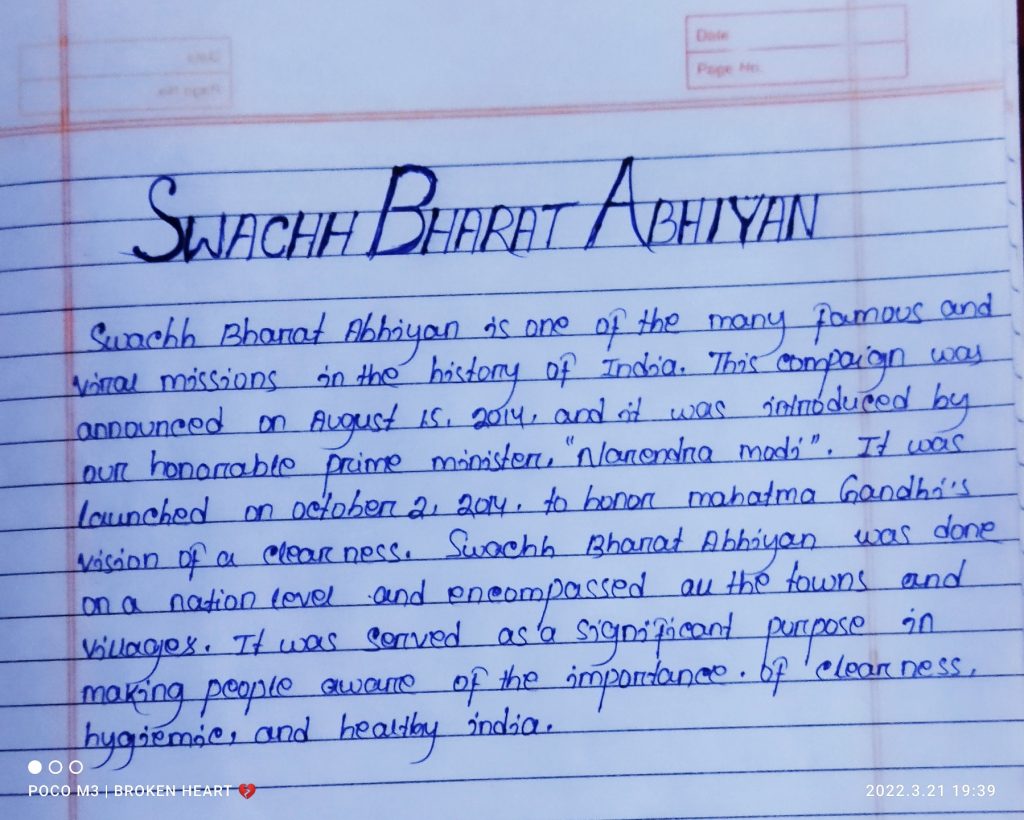 Date
Page No.
SWACHH BHARAT ABHIYAN
Swachh Bharat Abhiyan is one of the many famous and
viral missions in the history of India. This compaign was
announced on August 15, 2014, and it was introduced by
our honorable prime minister, "Narendra modi". It was
launched on october 2, 2014. to honor mahatma Gandhi's
vision of a clear ness. Swachh Bharat Abhiyan was done
on a nation level and encompassed all the towns and
villages. It was served as a significant purpose in
making people aware of the importance. of clear ness,
hygiemic, and healthy india.
POCO M3 | BROKEN HEART 💔
2022.3.21 19:39